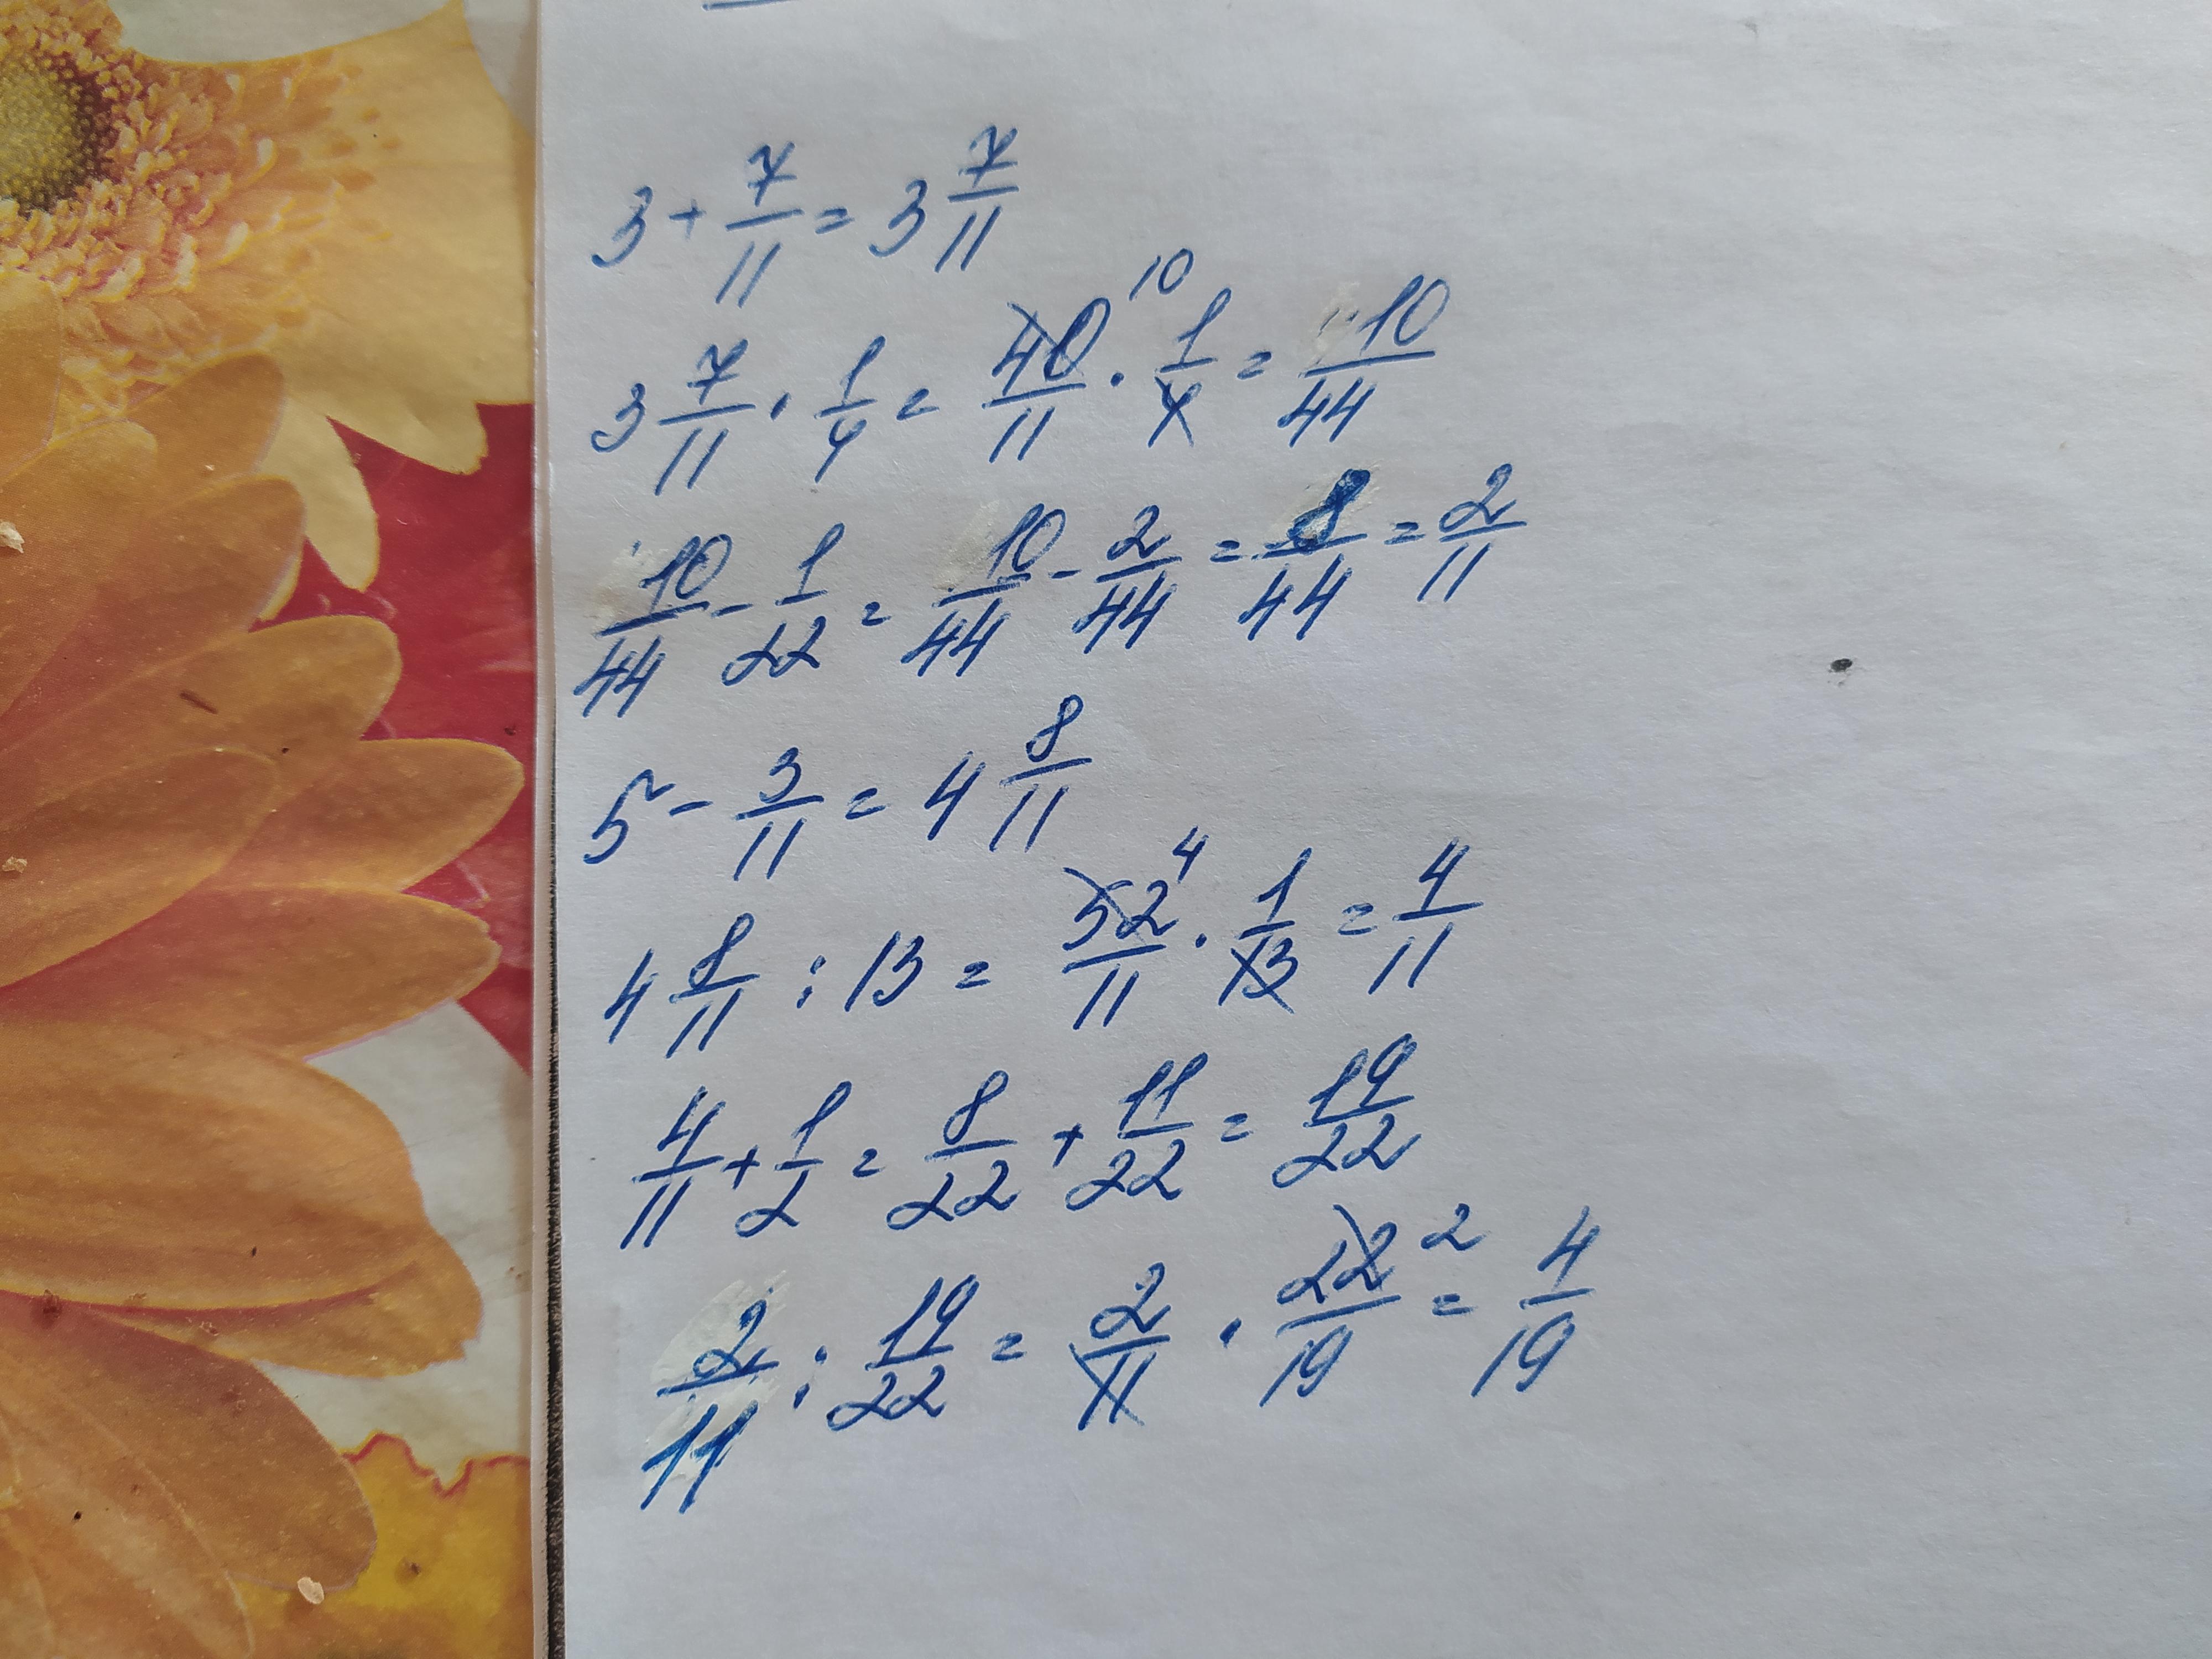 3 + 7/11 = 3 7/11
3 7/11 · 1/4 = 40/11 10 · 1/4 = 10/44
10/44 - 1/22 = 10/44 - 2/44 = 8/44 = 2/11
5 - 3/11 = 4 8/11
4 8/11 : 13 = 52/11 4 · 1/13 = 4/11
4/11 + 1/2 = 8/22 + 11/22 = 19/22
2/11 : 19/22 = 2/11 · 22/19 2 = 4/19